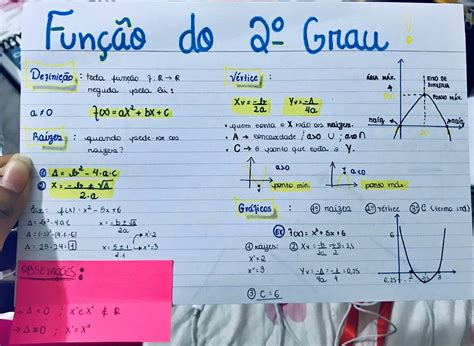 Função do 2º Grau!
Definição: toda função f: R → R
regida pela lei:
a ≠ 0 f(x) = ax² + bx + c
Raízes: quando pede-se as
raízes?
① Δ = b² - 4·a·c
② X = -b ± √Δ / 2·a
Ex: f(x) = x² - 5x + 6
Δ = b² - 4ac
Δ = (-5)² - (4·1·6)
Δ = 25 - 24 = 1
x = -b ± √Δ / 2a
x = 5 ± 1 / 2·1 → x' = 2
→ x'' = 3
OBSERVAÇÕES:
→ Δ < 0 ; x' e x'' ∉ R
→ Δ = 0 ; x' = x''
Vértice:
Xv = -b / 2a Yv = -Δ / 4a
• quem corta o X são as raízes.
• A → concavidade / a>0 ∪ ; a<0 ∩
• C → o ponto que corta o Y.
a>0
ponto mín.
a<0
ponto máx.
ÁREA MÁX.
EIXO DE
SIMETRIA
PONTO MÁX
raiz
raiz
Gráficos: 1º raízes 2º vértice 3º C (termo ind)
Ex f(x) = x² - 5x + 6
① raízes:
x' = 2
x'' = 3
② Xv = -b / 2a = 2,5
Yv = -Δ / 4a = -1 / 4 = 0,25
③ C = 6
6
0,25